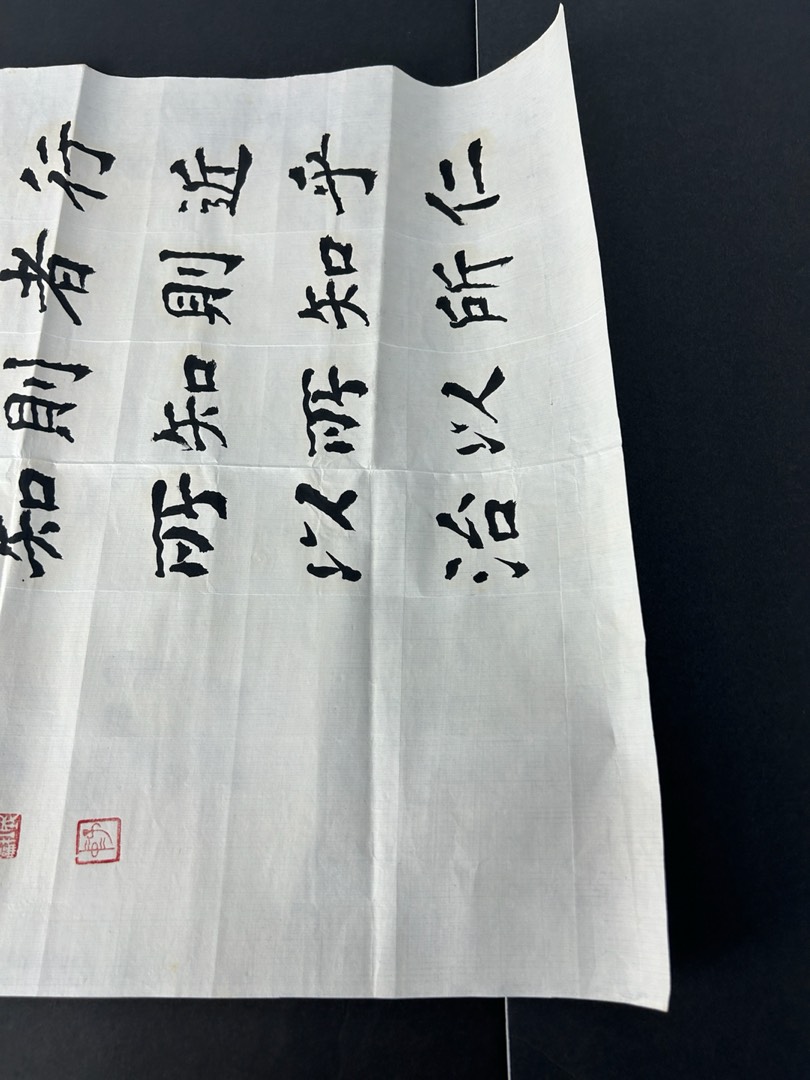 行近乎仁
者則知所
則知所以
知所以治